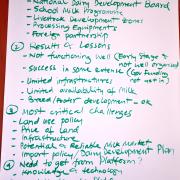 - National Dairy Development Board
- School Milk Programme
- Livestock Development Zone
- Processing Equipments
- Foreign partnership
② Results & Lessons
- Not functioning well (Early Stage & not well organised
- Success in some extent (Gov funding not in)
- Limited infrastructure
- Limited availability of milk
- Breed/Fodder development - ok
③ Most critical challenges
- Land use policy
- Price of Land
- Infrastructure
- Potential & Reliable Milk market
- Import policy/Dairy Development Plan
④ Need to get from Platform
- Knowledge & technology